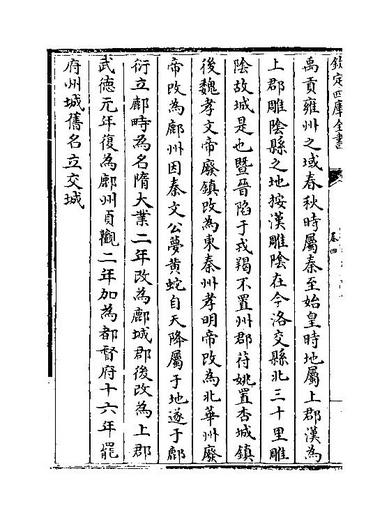 欽定四庫全書
禹貢雍州之域春秋時屬秦至始皇時地屬上郡漢為
上郡雕陰縣之地按漢雕陰在今洛交縣北三十里雕
陰故城是也暨晉陷于戎羯不置州郡苻姚置杏城鎮
後魏孝文帝廢鎮改為東秦州孝明帝改為北華州廢
帝改為鄜州因秦文公夢黄蛇自天降屬于地遂于鄜
衍立鄜畤為名隋大業二年改為鄜城郡後改為上郡
武德元年復為鄜州貞觀二年加為都督府十六年罷
府州城舊名立交城